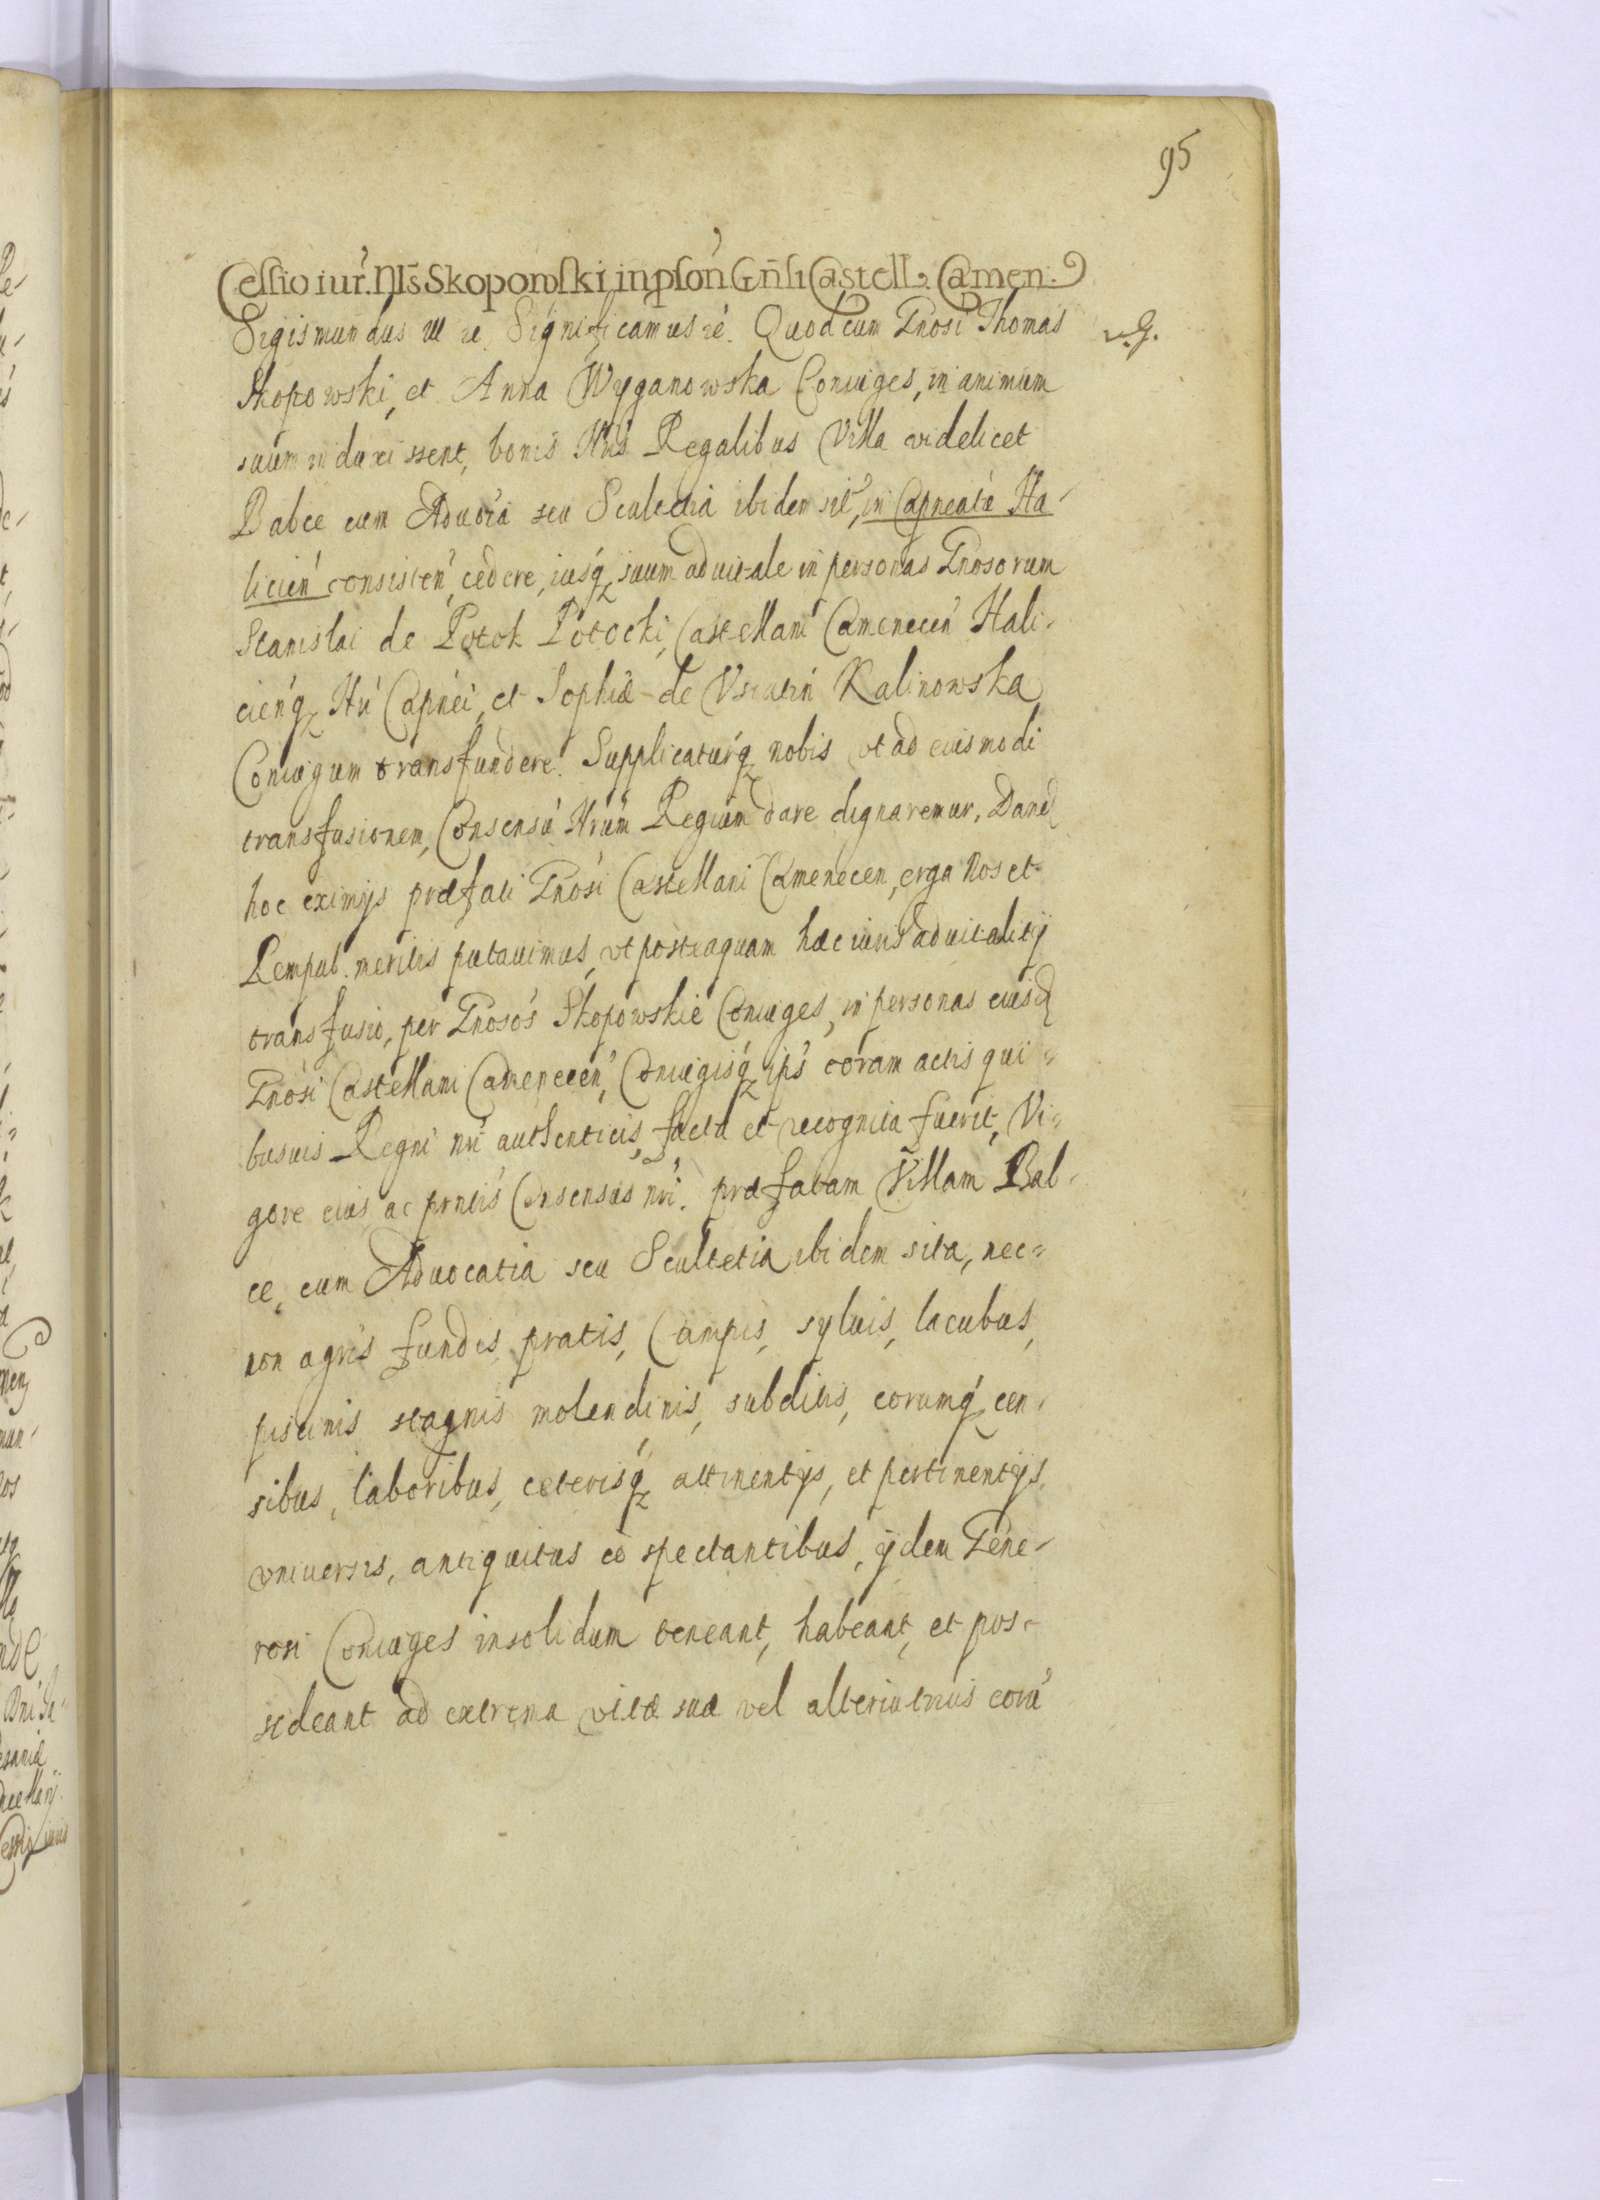 95
Cessio iur. Nls Skopowski in pson Gnsi Castell. Camen.
Sigismundus III etc. Significamus etc. Quod cum Gnosi Thomas
v. G.
Skopowski, et Anna Wyganowska Coniuges, in animum
suum induxissent, bonis Nris Regalibus Villa videlicet
Babce cum Aduocia seu Scultetia ibidem sit, in Capneatu Ha-
licien consisten, cedere, iusq suum aduitale in personas Gnosorum
Stanislai de Potok Potocki, Castellani Camenecen Hali-
cienq Nri Capnei, et Sophiæ de Vsiatin Kalinowska
Coniugum transfundere. Supplicaturq nobis vt ad eiusmodi
transfusionem, Consensu Nrum Regium dare dignaremur, Dand
hoc eximijs præfati Gnosi Castellani Camenecen, erga Nos et
Rempub. meritis putauimus, vt posteaquam hæc iuris aduitalitij
transfusio, per Gnosos Skopowskie Coniuges, in personas eiusd
Gnosi Castellani Camenecen, Coniugisq ips coram actis qui-
busuis Regni nri authenticis, facta et recognita fuerit, Vi-
gore eius ac prntis Consensus nri. præfatam Villam Bab-
ce, cum Aduocatia seu Scultetia ibidem sita, nec-
non agris fundis, pratis, Campis, syluis, lacubus,
piscinis stagnis molendinis, subditis, eorumq cen-
sibus, laboribus, ceterisq attinentijs, et pertinentijs,
vniuersis, antiquitus eò spectantibus, ijdem Gene-
rosi Coniuges insolidum teneant, habeant, et pos-
sideant ad extrema vitæ suæ vel alteriutrius eoru